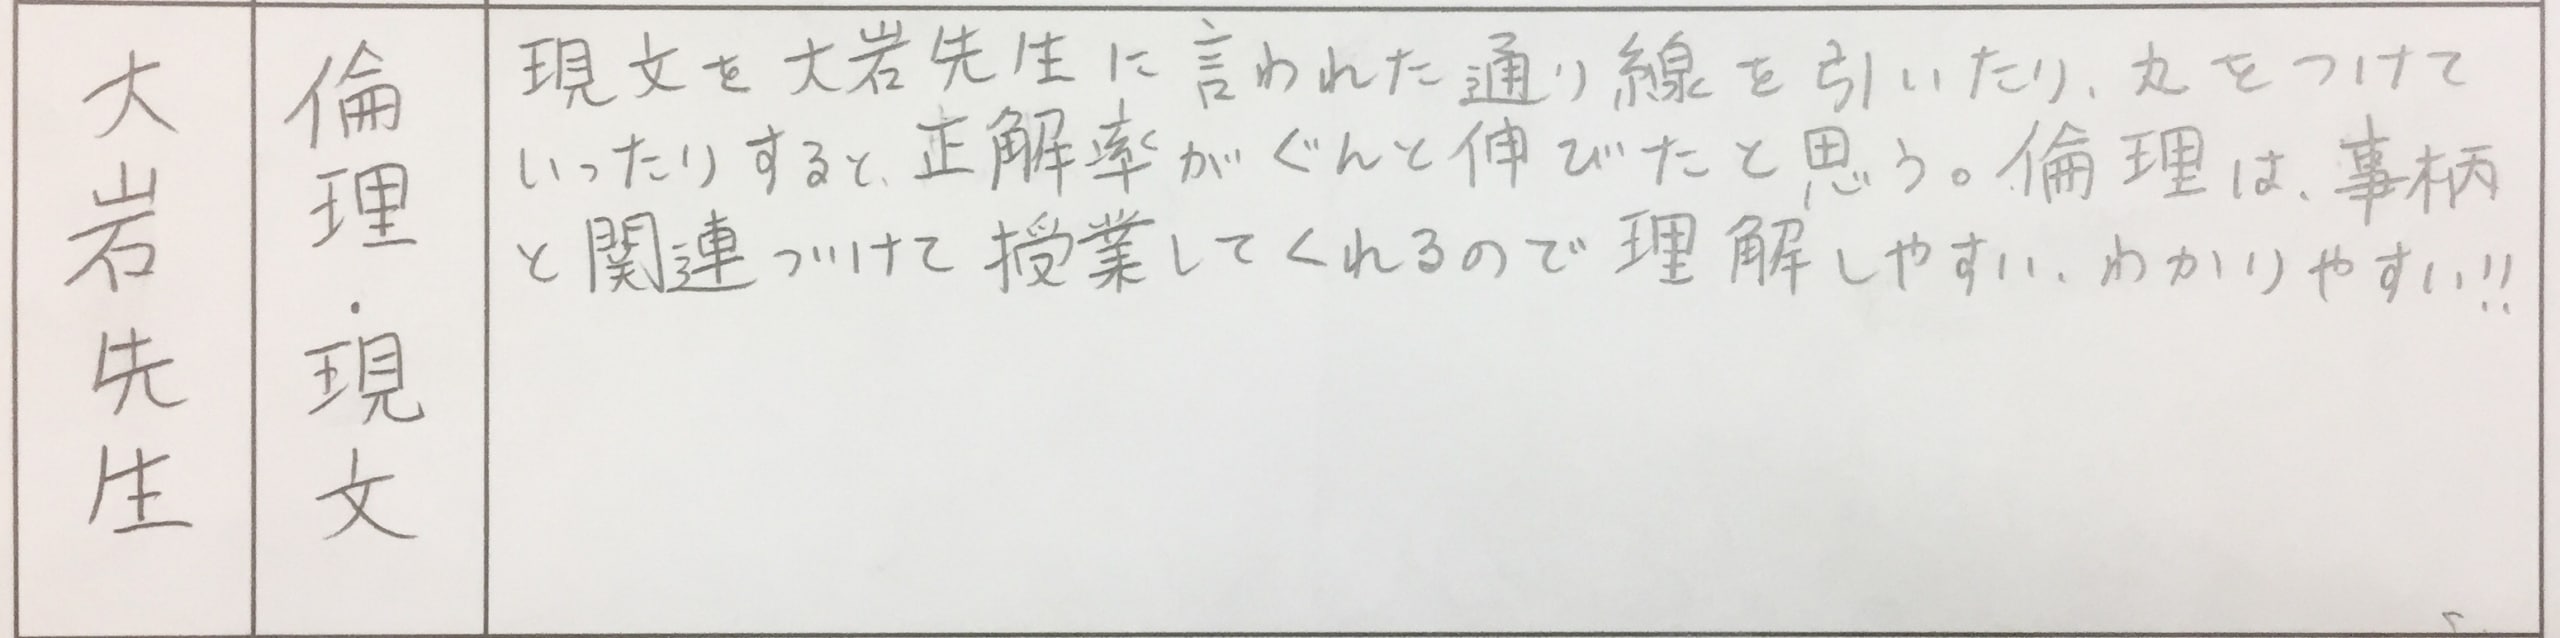 大岩先生
倫理・現文
現文を大岩先生に言われた通り線を引いたり、丸をつけて
いったりすると、正解率がぐんと伸びたと思う。倫理は、事柄
と関連づけて授業してくれるので理解しやすい、わかりやすい!!